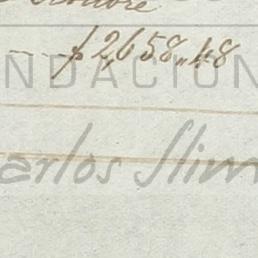 Octubre
$ 2,658,,48
NDACIÓN
arlos Slim